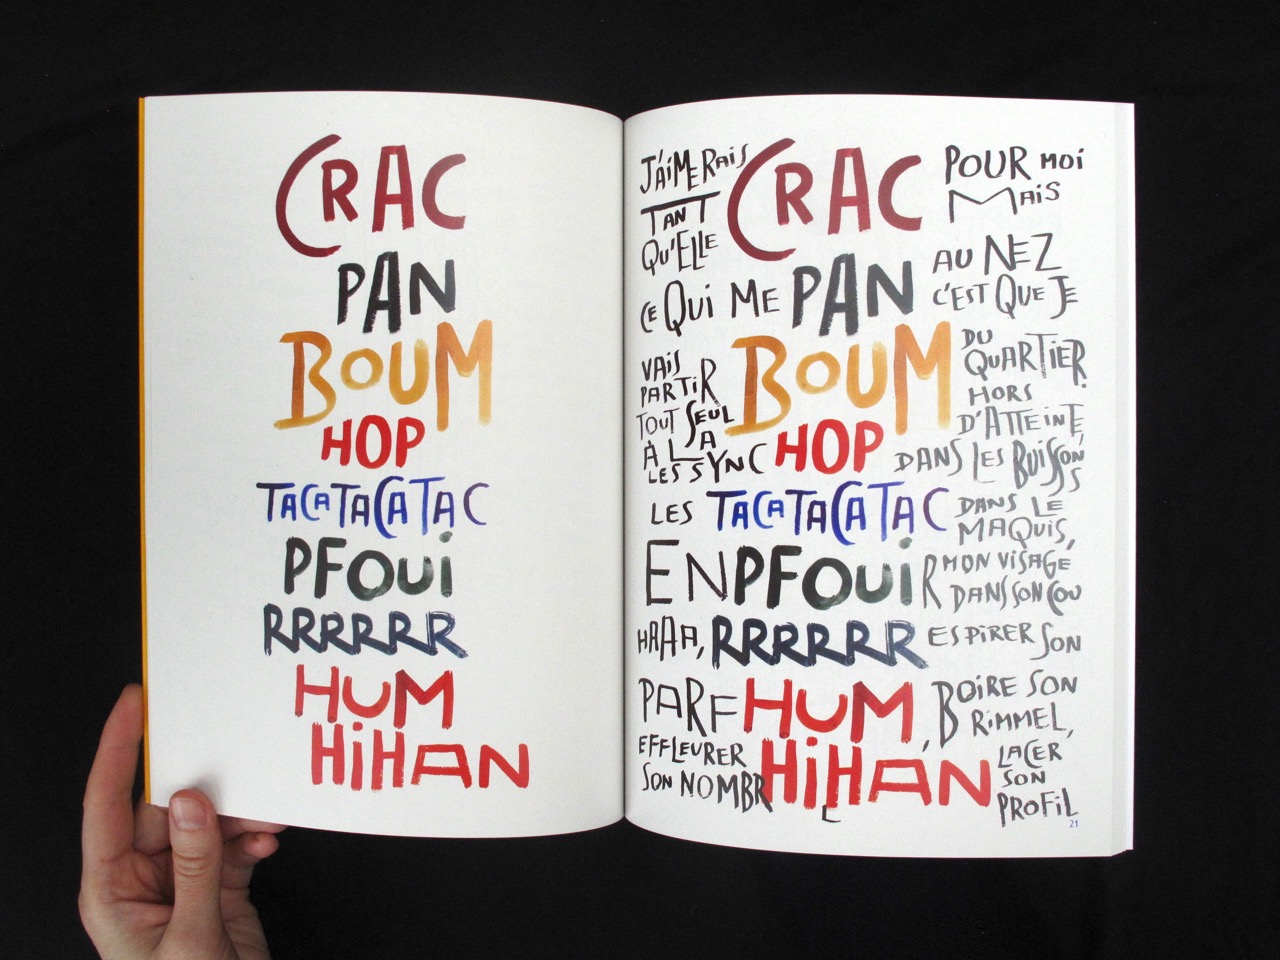 CRAC
PAN
BOUM
HOP
TACATACATAC
PFOUi
RRRRRR
HUM
HiHAN
J'AiMERAiS
TANT
QU'ELLE
CRAC
POUR MOi
MAiS
CE QUi ME PAN
AU NEZ
C'EST QUE JE
VAiS
PARTiR
TOUT SEUL
À LA
BOUM
DU
QUARTiER.
HORS
D'ATTEiNTE,
LES SYNC HOP DANS LES BUiSSONS
LES TACATACATAC DANS LE
MAQUiS,
ENPFOUiR MON ViSAGE
DANS SON COU
HAAA, RRRRRRESPiRER SON
PARFHUM, BOiRE SON
RiMMEL,
EFFLEURER
SON NOMBRiL
HiHAN
LACER
SON
PROFiL
21